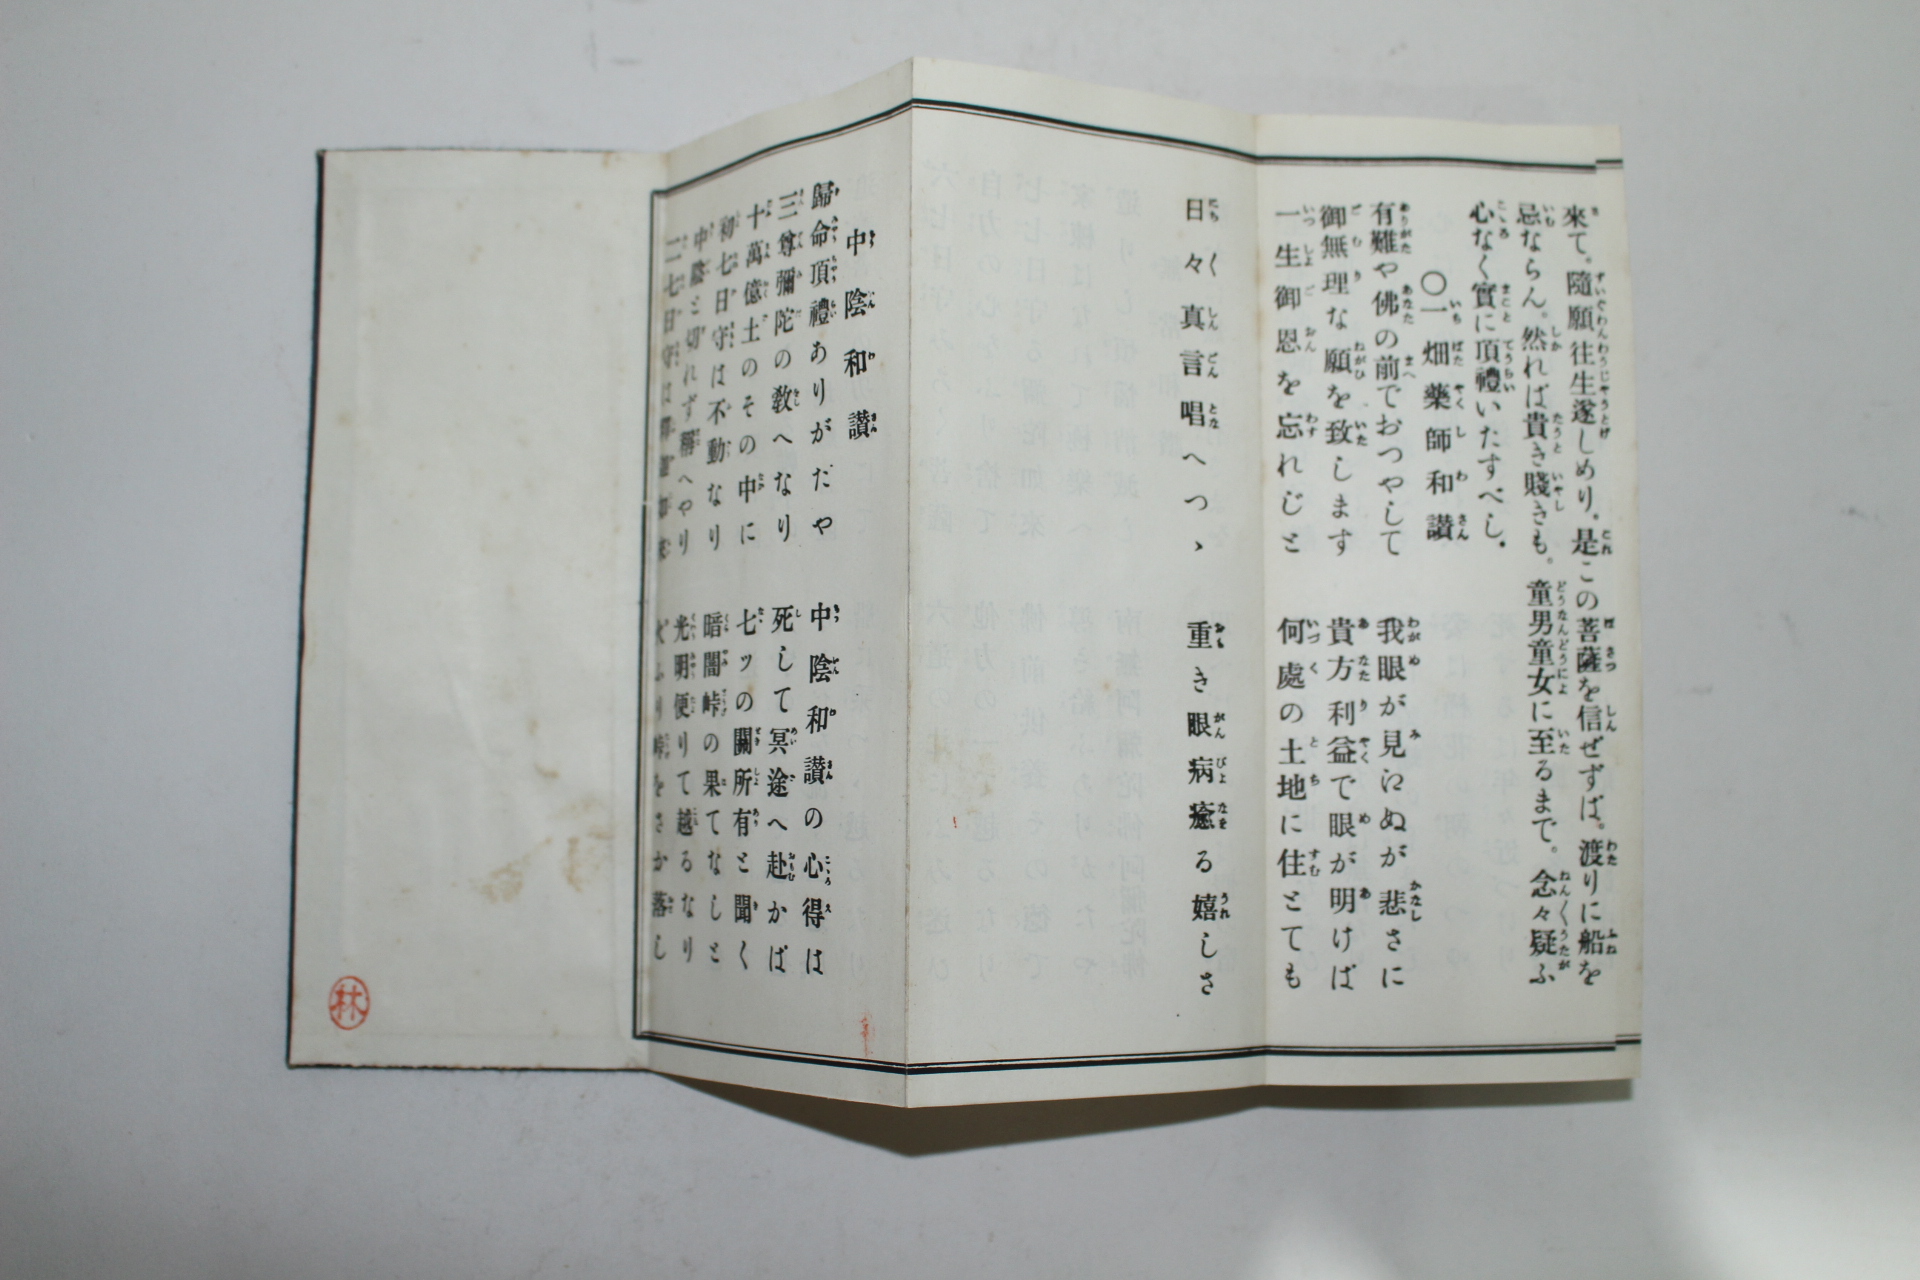 來て。隨願往生遂しめり。是この菩薩を信ぜずば。渡りに船を
忌ならん。然れば貴き賤きも。童男童女に至るまで。念々疑ふ
心なく實に頂禮いたすべし。
〇一畑藥師和讃
有難や佛の前でおつやして 我眼が見にぬが悲さに
御無理な願を致します 貴方利益で眼が明けば
一生御恩を忘れじと 何處の土地に住とても
日々真言唱へつゝ 重き眼病癒る嬉しさ
中陰和讃
歸命頂禮ありがだや 中陰和讃の心得は
三尊彌陀の教へなり 死して冥途へ赴かば
十萬億土のその中に 七ッの關所有と聞く
初七日守は不動なり 暗闇峠の果てなしと
中陰と切れず稱へやり 光明便りて越るなり
二七日守は釋迦如來 火ふり峠をさか落し
林